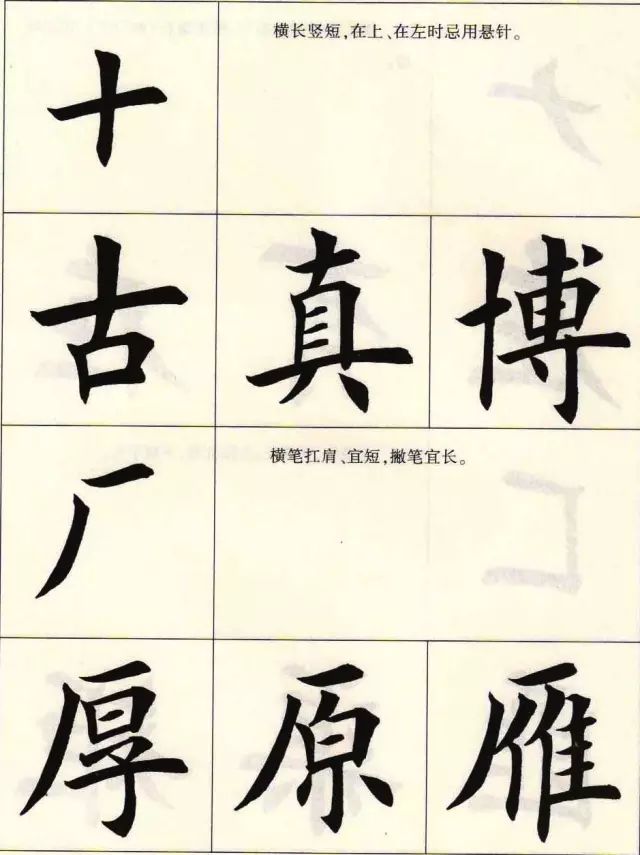 十
横长竖短,在上、在左时忌用悬针。
古 真 博
厂
横笔扛肩、宜短,撇笔宜长。
厚 原 雁